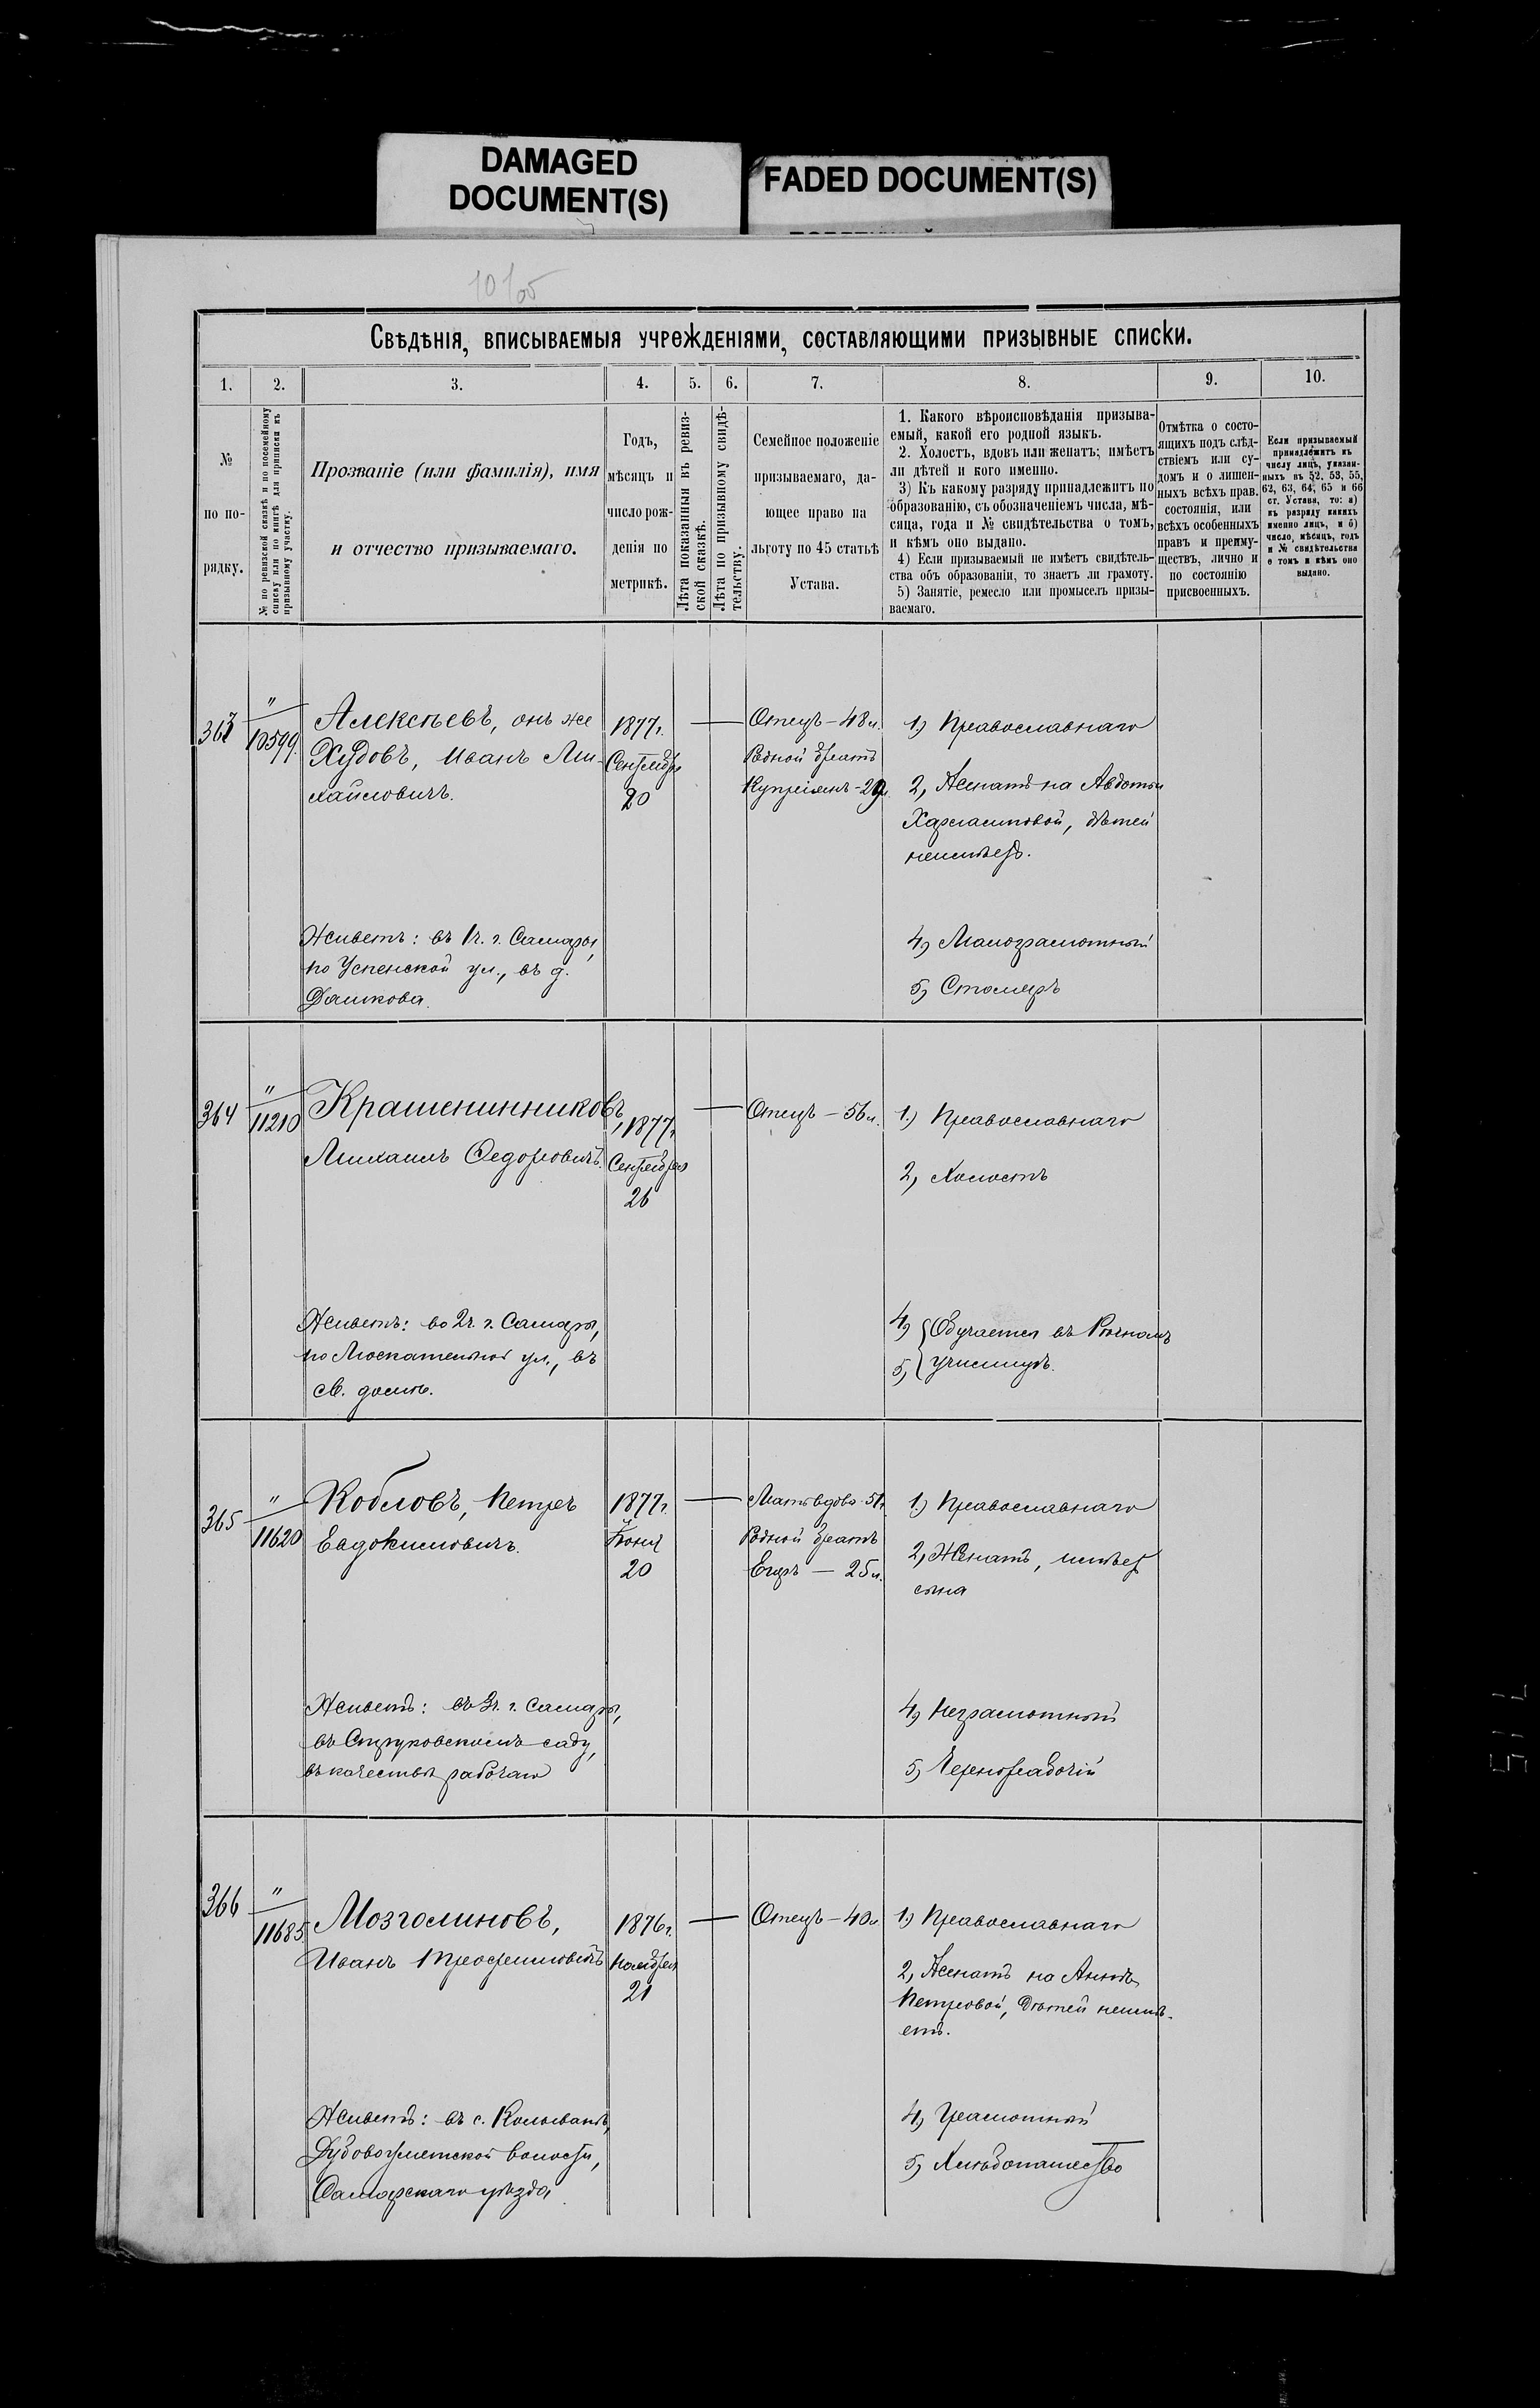 DAMAGED
DOCUMENT(S)
FADED DOCUMENT(S)
Свѣдѣнія, вписываемыя учрежденіями, составляющими призывные списки.
1. 2. 3. 4. 5. 6. 7. 8. 9. 10.
№
по по-
рядку.
№ по ревизской сказкѣ и по посемейному
списку или по книгѣ для приписки къ
призывному участку.
Прозваніе (или фамилія), имя
и отчество призываемаго.
Годъ,
мѣсяцъ и
число рож-
денія по
метрикѣ.
Лѣта показанныя въ ревиз-
ской сказкѣ.
Лѣта по призывному свидѣ-
тельству.
Семейное положеніе
призываемаго, да-
ющее право на
льготу по 45 статьѣ
Устава.
1. Какого вѣроисповѣданія призыва-
емый, какой его родной языкъ.
2. Холостъ, вдовъ или женатъ; имѣетъ
ли дѣтей и кого именно.
3) Къ какому разряду принадлежитъ по
образованію, съ обозначеніемъ числа, мѣ-
сяца, года и № свидѣтельства о томъ,
и кѣмъ оно выдано.
4) Если призываемый не имѣетъ свидѣтель-
ства объ образованіи, то знаетъ ли грамоту.
5) Занятіе, ремесло или промыселъ призы-
ваемаго.
Отмѣтка о состо-
ящихъ подъ слѣд-
ствіемъ или су-
домъ и о лишен-
ныхъ всѣхъ прав.
состоянія, или
всѣхъ особенныхъ
правъ и преиму-
ществъ, лично и
по состоянію
присвоенныхъ.
Если призываемый
принадлежитъ къ
числу лицъ, указан-
ныхъ въ 52, 53, 55,
62, 63, 64, 65 и 66
ст. Устава, то: а)
къ разряду какихъ
именно лицъ, и б)
число, мѣсяцъ, годъ
и № свидѣтельства
о томъ и кѣмъ оно
выдано.
363
"
10599.
Алексѣевъ, онъ же
Худовъ, Иванъ Ми-
хайловичъ.
1877г.
Сентября
20
Отецъ – 48 л.
Родной братъ
Купріянъ – 20 л.
1.) Православнаго
2, Женатъ на Авдотьи
Харлаmповой, дѣтей
неимѣетъ.
4, Малограмотный
5, Столяръ
Живетъ: въ 1ч. г. Самары,
по Успенской ул., въ д.
Дашкова.
364
"
11210
Крашенинниковъ,
Михаилъ Ѳедоровичъ.
1877г.
Сентября
26
Отецъ – 56 л.
1.) Православнаго
2, Холостъ
4, 5, Обучается въ Рѣчномъ
училищѣ.
Живетъ: во 2ч. г. Самары,
по Москательной ул., въ
св. домѣ.
365
"
11620
Кобловъ, Петръ
Евдокимовичъ.
1877г.
Іюня
20
Мать вдова – 51 г.
Родной братъ
Егоръ – 25 л.
1.) Православнаго
2, Женатъ, имѣетъ
сына
4, Неграмотный
5, Чернорабочій
Живетъ: въ 3ч. г. Самары,
въ Струковскомъ саду,
въ качествѣ рабочаго
366
"
11685
Мозголиновъ,
Иванъ Трофимовичъ
1876г.
Ноября
21
Отецъ – 40 л
1.) Православнаго
2, Женатъ на Аннѣ
Петровой, дѣтей неимѣ-
етъ.
4, Грамотный
5, Хлѣбопашество
Живетъ: въ с. Колывани,
Дубовоуметской волости,
Самарскаго уѣзда